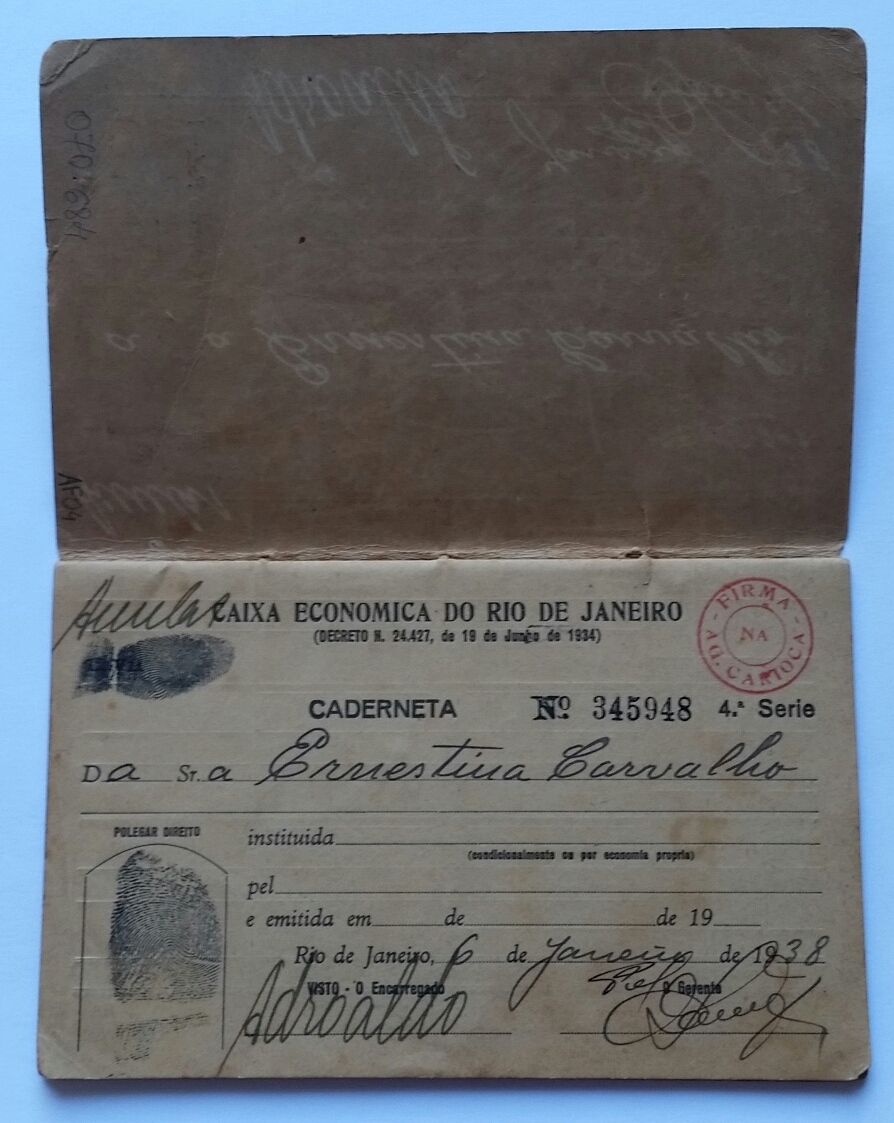 0701684
AF04
CAIXA ECONOMICA DO RIO DE JANEIRO
(DECRETO N. 24.427, de 19 de Junho de 1934)
FIRMA NA AG. CARIOCA
CADERNETA Nº 345948 4.ª Serie
Da Sr.a Ernestina Carvalho
POLEGAR DIREITO
instituida
(condicionalmente ou por economia propria)
pel
e emitida em de de 19
Rio de Janeiro, 6 de Janeiro de 1938
VISTO - O Encarregado O Gerente
Adroaldo